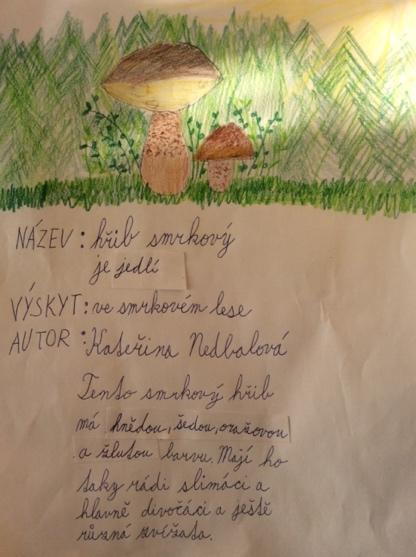 NÁZEV: hřib smrkový
je jedlí
VÝSKYT: ve smrkovém lese
AUTOR: Kateřina Nedbalová
Tento smrkový hřib
má hnědou, šedou, oražovou
a žlutou barvu. Mají ho
taky rádi slimáci a
hlavně divočáci a ještě
různá zvířata.